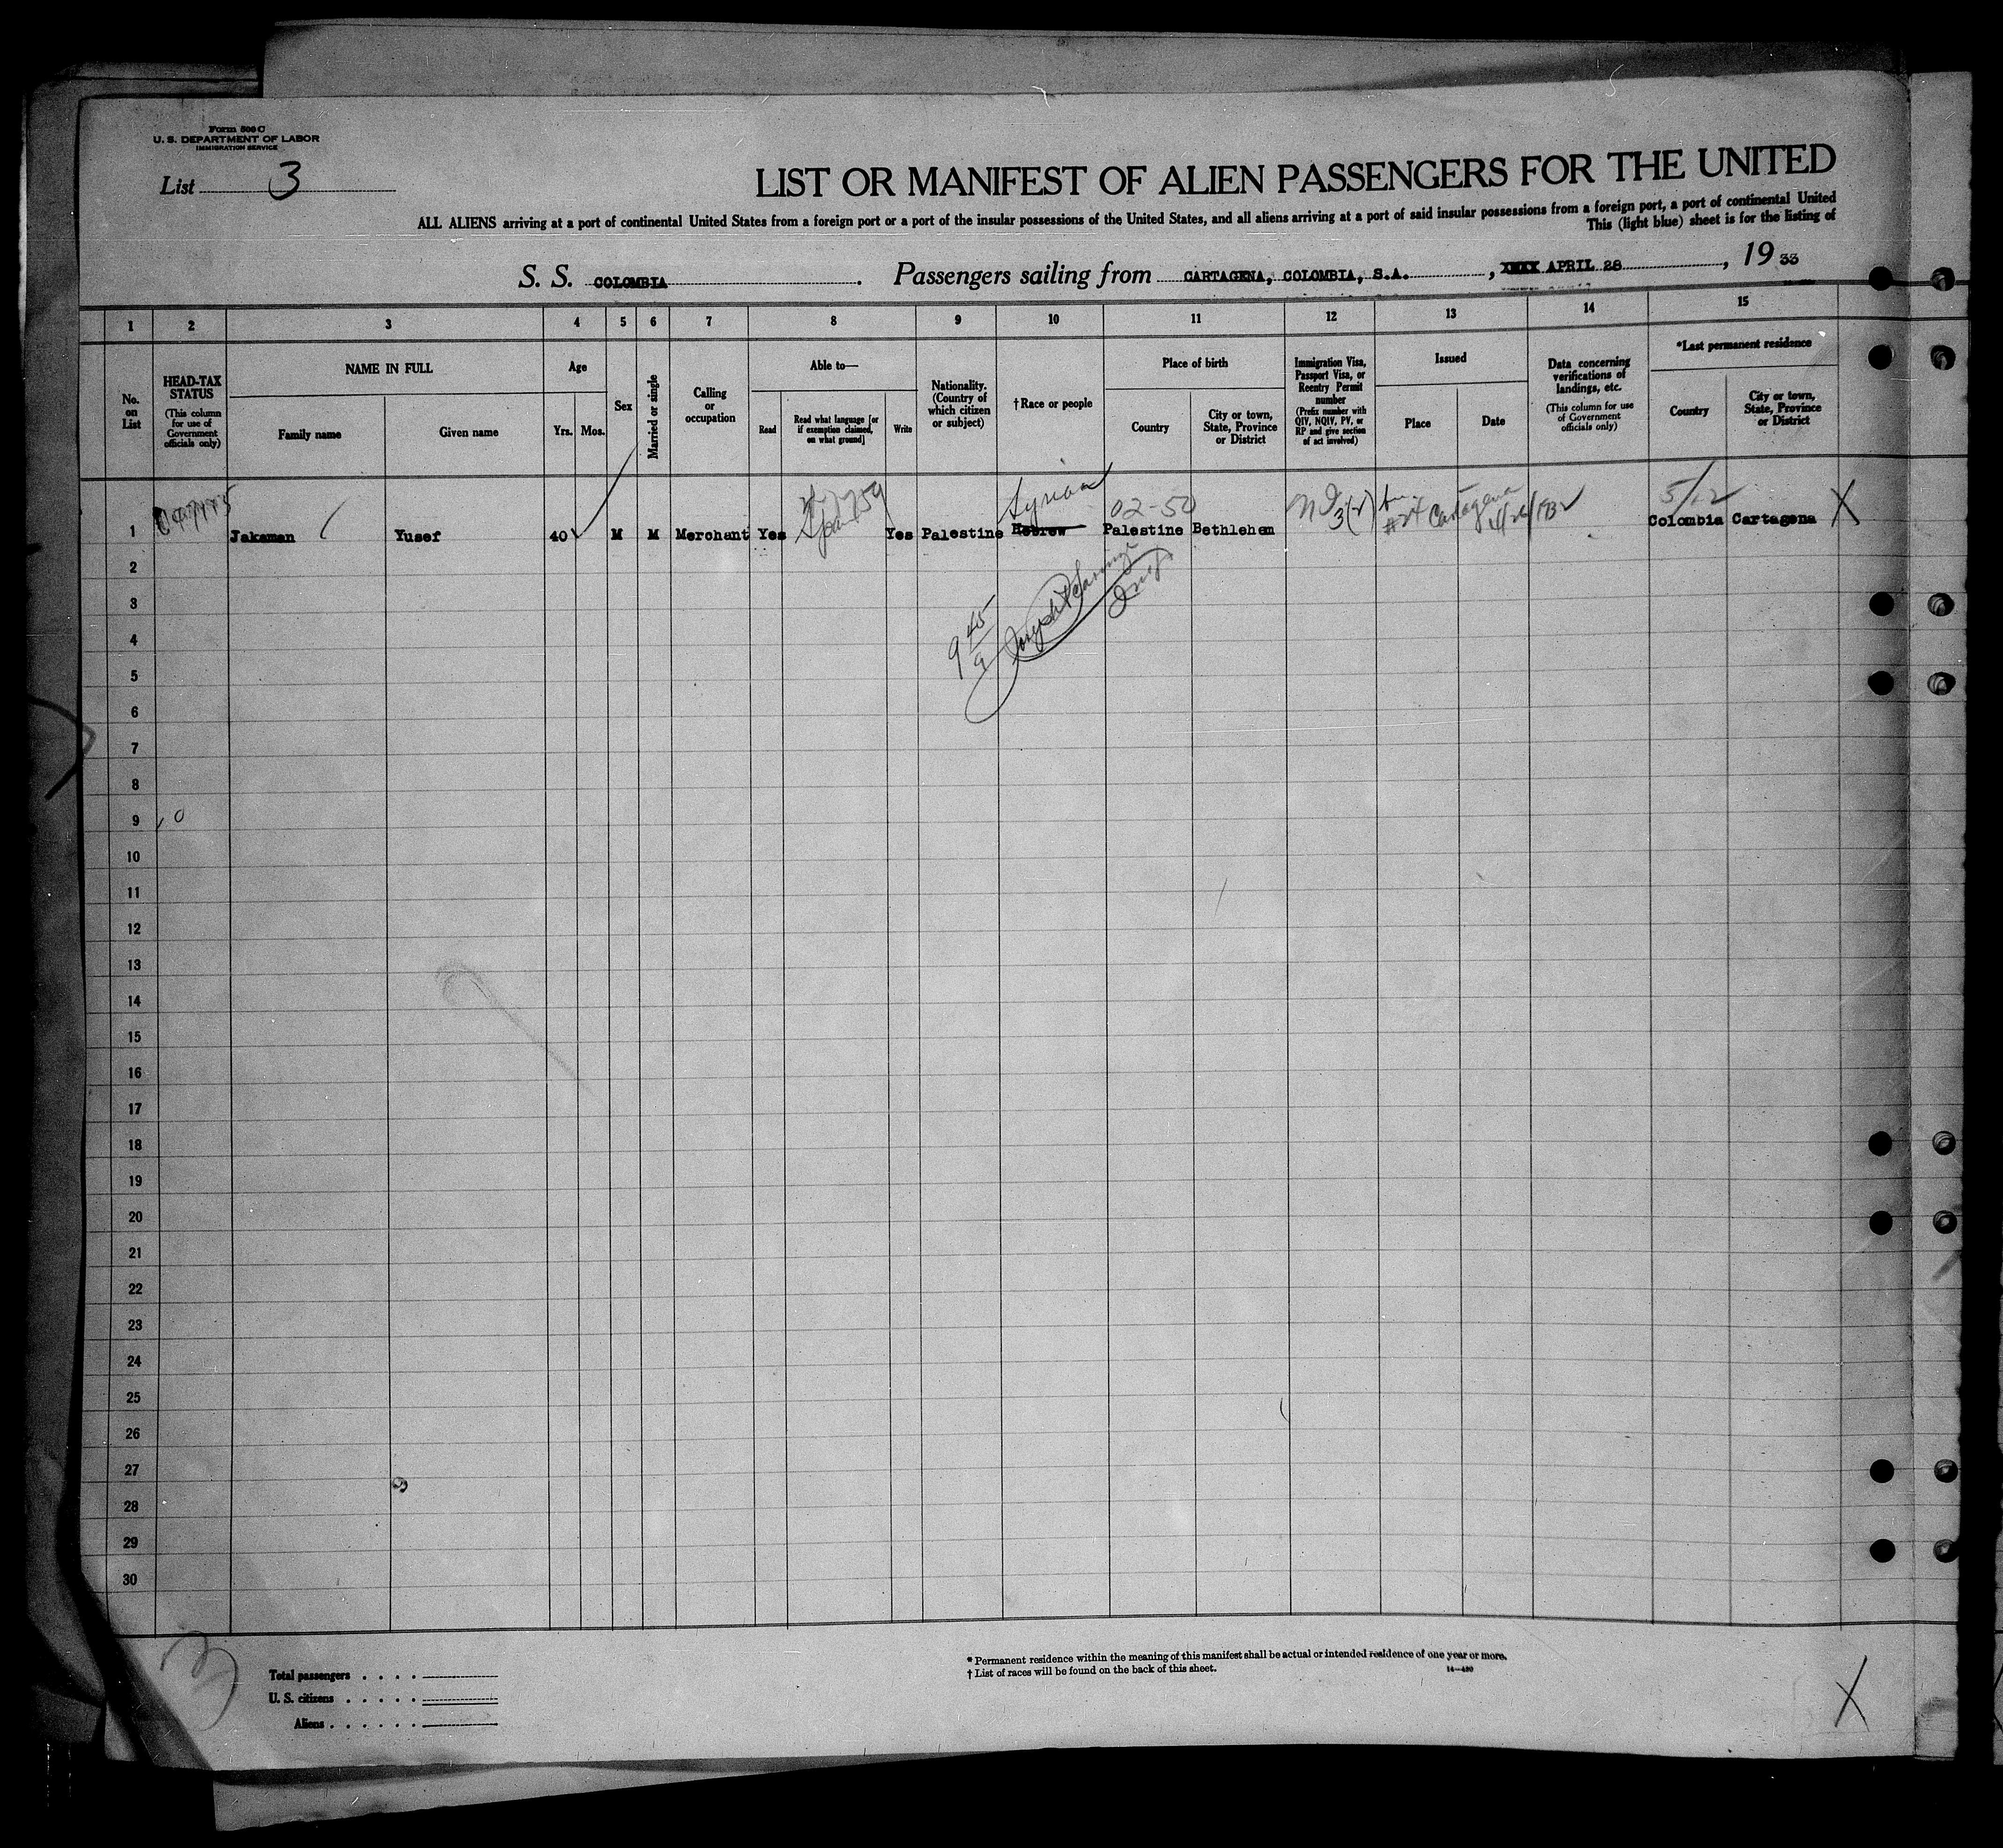 Form 500 C
U. S. DEPARTMENT OF LABOR
IMMIGRATION SERVICE
List 3
LIST OR MANIFEST OF ALIEN PASSENGERS FOR THE UNITED
ALL ALIENS arriving at a port of continental United States from a foreign port or a port of the insular possessions of the United States, and all aliens arriving at a port of said insular possessions from a foreign port, a port of continental United
This (light blue) sheet is for the listing of
S. S. COLOMBIA. Passengers sailing from CARTAGENA, COLOMBIA, S.A., XXXX APRIL 28, 1933
1 2 3 4 5 6 7 8 9 10 11 12 13 14 15
No. on List
HEAD-TAX STATUS
(This column for use of Government officials only)
NAME IN FULL
Family name
Given name
Age
Yrs. Mos.
Sex
Married or single
Calling or occupation
Able to—
Read
Read what language [or if exemption claimed, on what ground]
Write
Nationality. (Country of which citizen or subject)
†Race or people
Place of birth
Country
City or town, State, Province or District
Immigration Visa, Passport Visa, or Reentry Permit number
(Prefix number with QIV, NQIV, PV, or RP and give section of act involved)
Issued
Place
Date
Data concerning verifications of landings, etc.
(This column for use of Government officials only)
*Last permanent residence
Country
City or town, State, Province or District
Syrian 02-50 3(2) Cartagena 5/12 X
1 Jakaman Yusef 40 M M Merchant Yes Span Yes Palestine Hebrew Palestine Bethlehem Colombia Cartagena
2
3
4
5
6
7
8
9
10
11
12
13
14
15
16
17
18
19
20
21
22
23
24
25
26
27
28
29
30
3
Total passengers . . . .
U. S. citizens . . . . .
Aliens . . . . . .
* Permanent residence within the meaning of this manifest shall be actual or intended residence of one year or more.
† List of races will be found on the back of this sheet.
14—430
X